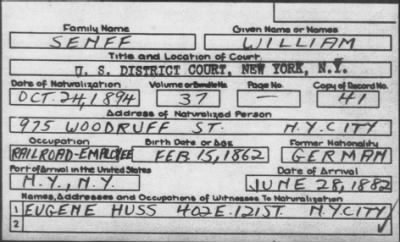 Family Name Given Name or Names
SENFF WILLIAM
Title and Location of Court
U. S. DISTRICT COURT, NEW YORK, N.Y.
Date of Naturalization Volume or Bundle No. Page No. Copy of Record No.
OCT. 24, 1894 37 — 41
Address of Naturalized Person
975 WOODRUFF ST. N.Y. CITY
Occupation Birth Date or Age Former Nationality
RAILROAD-EMPLOYEE FEB. 15, 1862 GERMAN
Port of Arrival in the United States Date of Arrival
N.Y., N.Y. JUNE 28, 1882
Names, Addresses and Occupations of Witnesses To Naturalization
1 EUGENE HUSS 402 E. 121 ST. N.Y. CITY
2